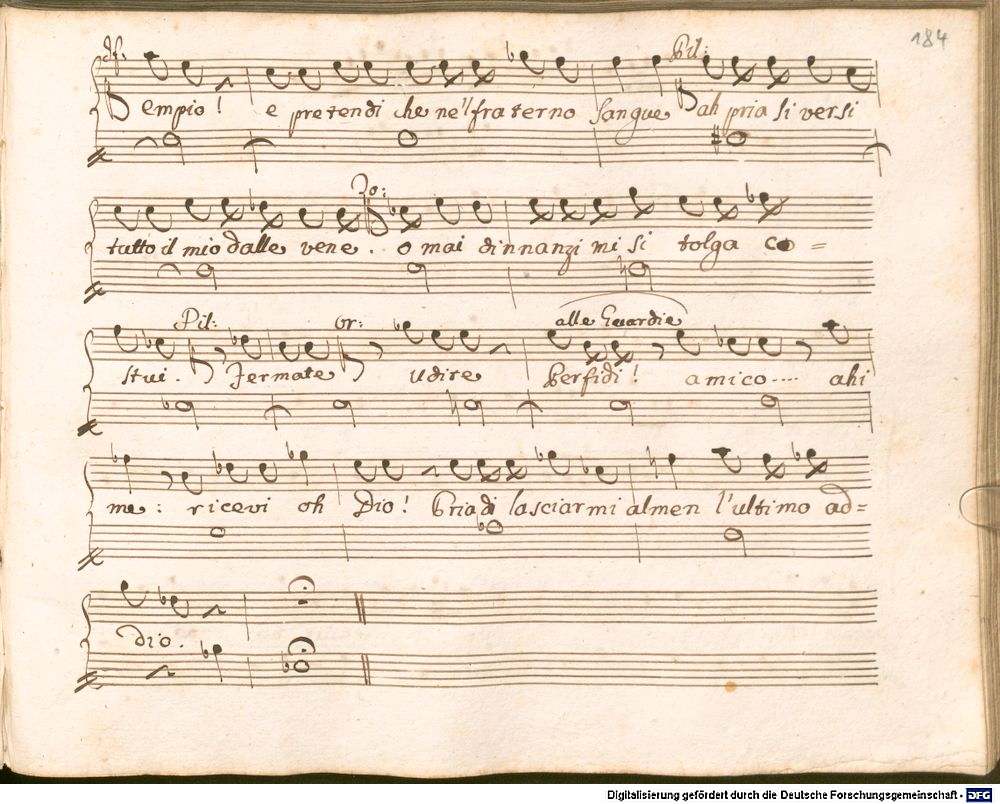 184
Pil:
empio! e pretendi che ne'l fraterno sangue ah pria si versi
To:
tutto il mio dalle vene. o mai dinnanzi mi si tolga co =
Pil: Or: alle Guardie
stui. Fermate Udite Perfidi! amico.... ahi
me: ricevi oh Dio! Pria di lasciarmi almen l'ultimo ad=
dio.
Digitalisierung gefördert durch die Deutsche Forschungsgemeinschaft - DFG